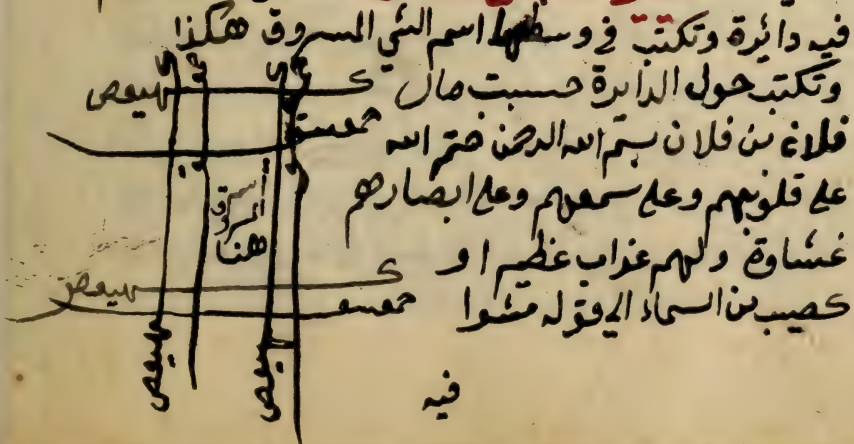 فيه دائرة وتكتب في وسطها اسم الشي المسروق هكذا
وتكتب حول الدايرة حسبت مال
فلانه بن فلان بسم الله الرحمن ختم الله
على قلوبهم وعلى سمعهم وعلى ابصارهم
غشاوة ولهم عذاب عظيم او
كصيب من السماء الى قوله مشوا
فيه
كهيعص
حمعسق
اسم
المسروق
هنا
كهيعص
حمعسق
كهيعص
كهيعص